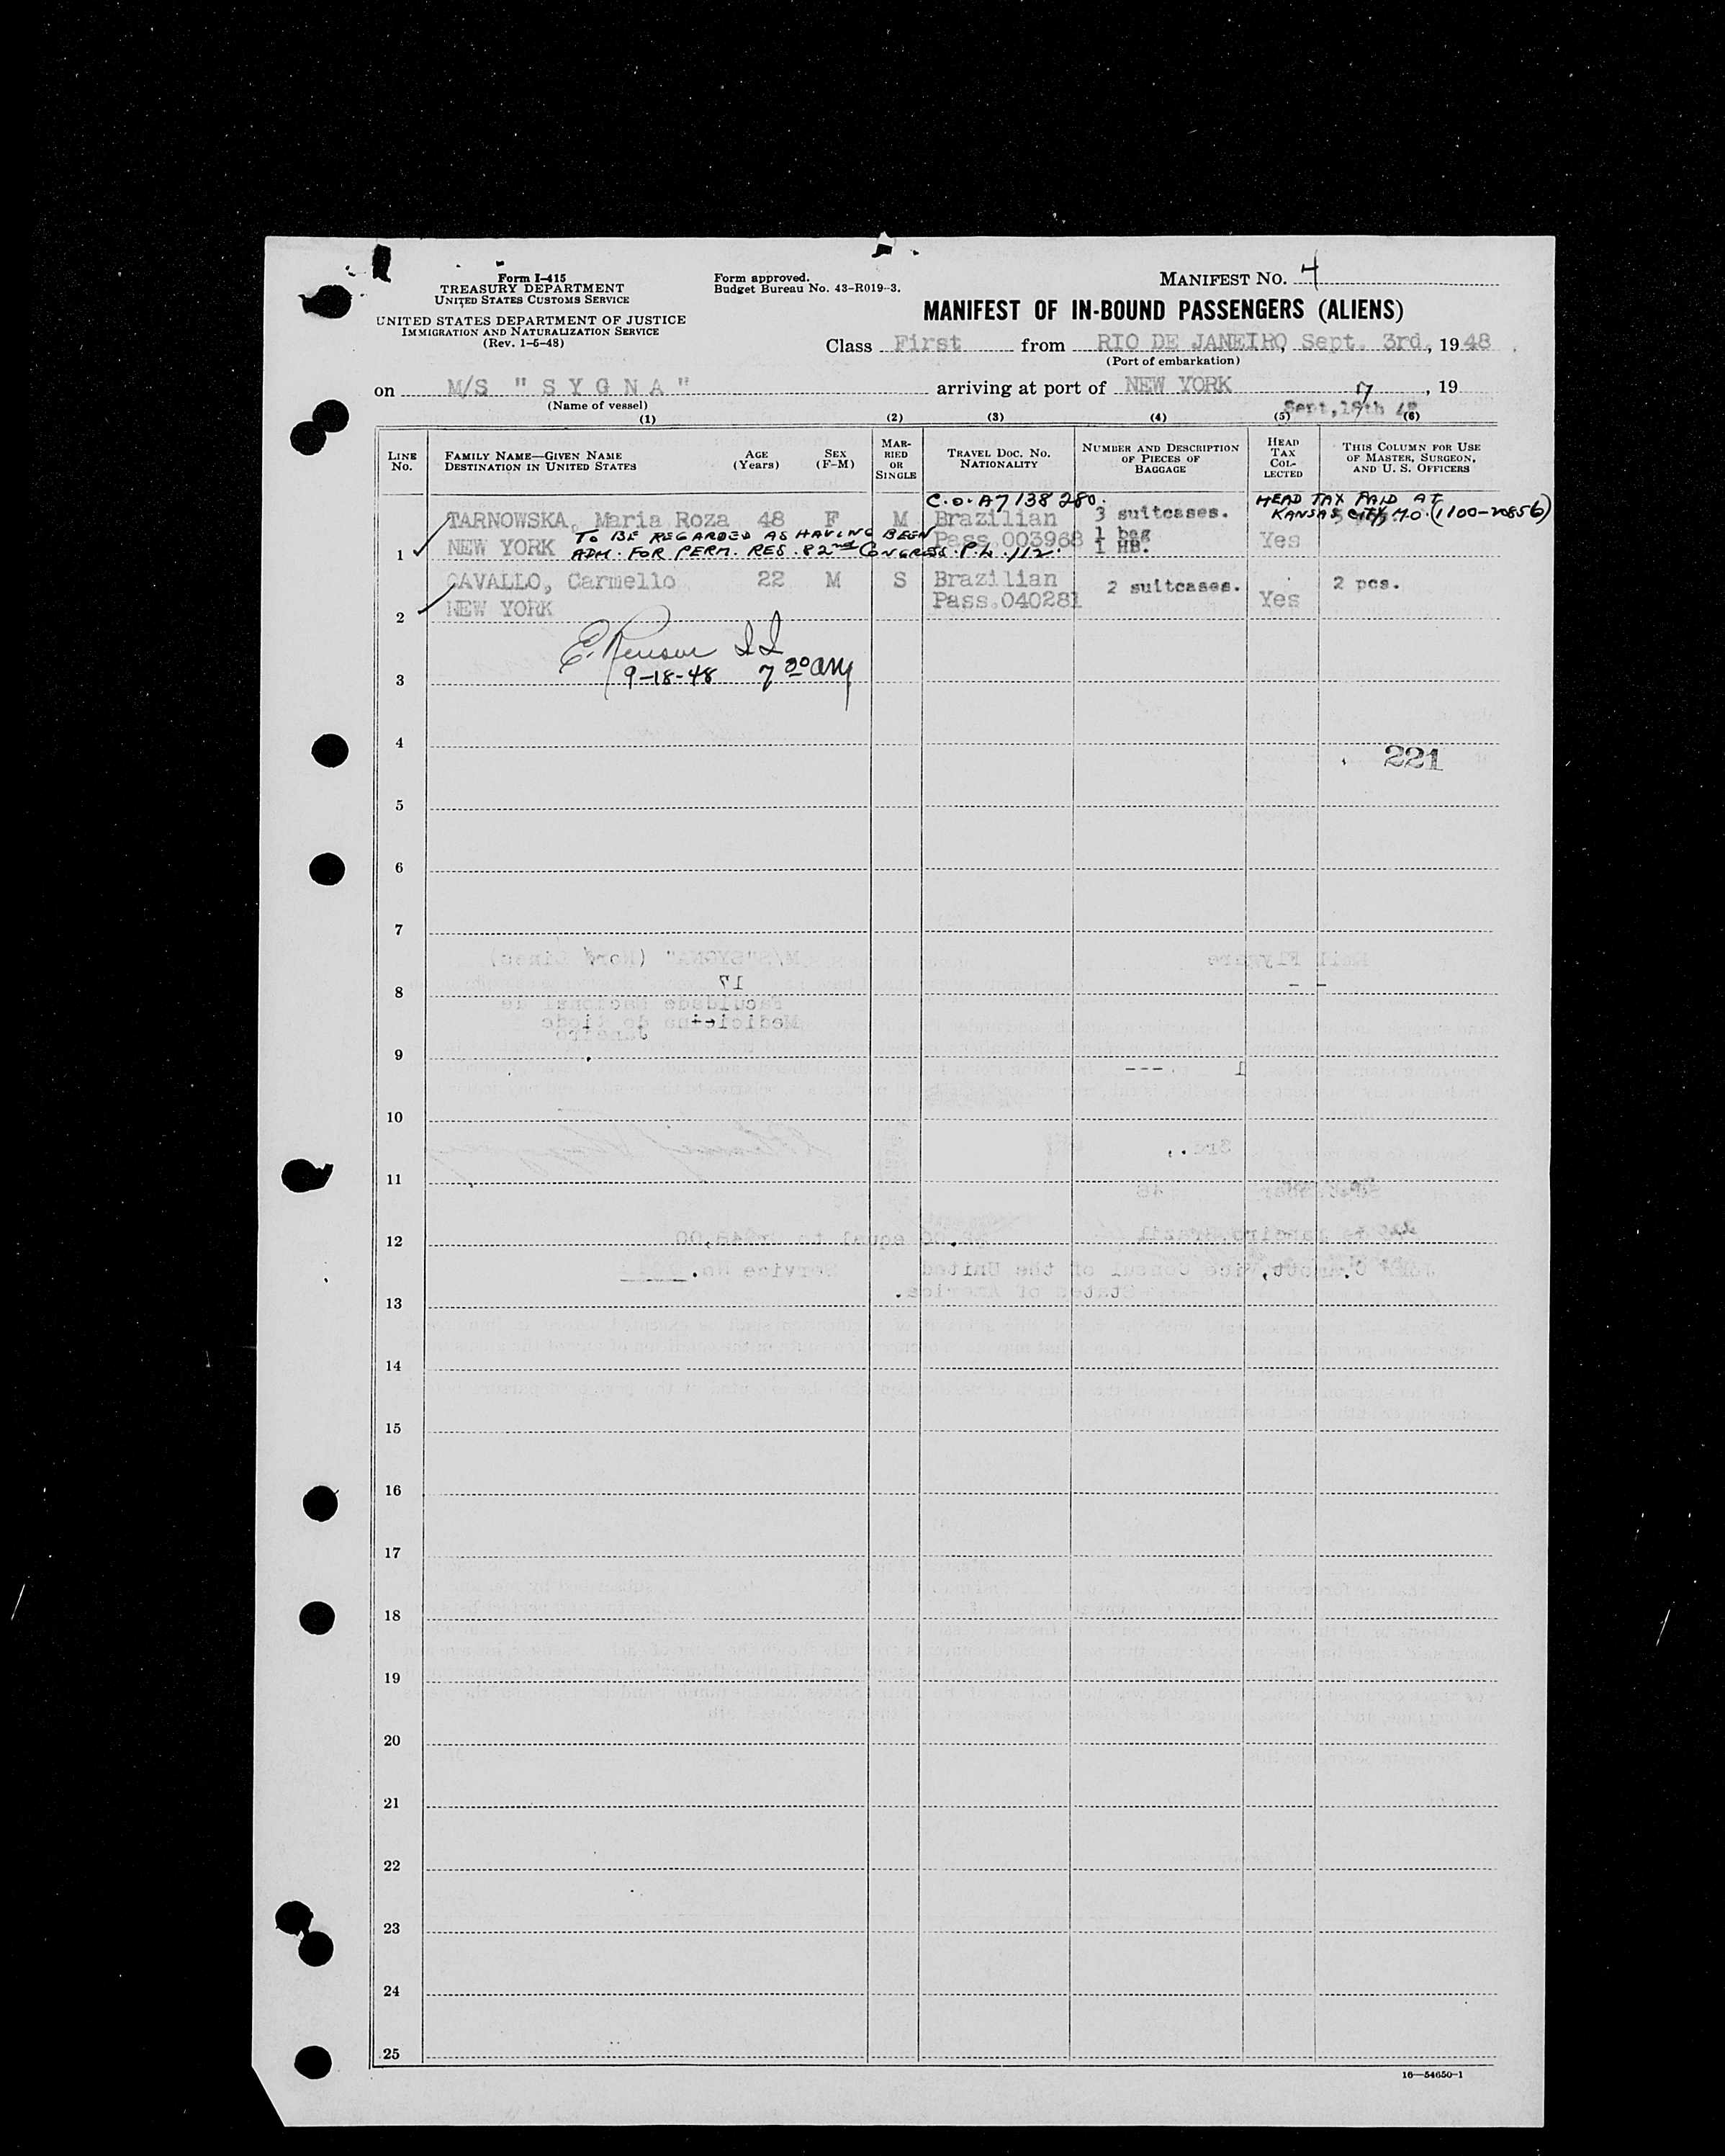 Form I-415
TREASURY DEPARTMENT
UNITED STATES CUSTOMS SERVICE
UNITED STATES DEPARTMENT OF JUSTICE
IMMIGRATION AND NATURALIZATION SERVICE
(Rev. 1-5-48)
Form approved.
Budget Bureau No. 43-R019-3.
MANIFEST NO. 4
MANIFEST OF IN-BOUND PASSENGERS (ALIENS)
Class First from RIO DE JANEIRO, Sept. 3rd, 1948
(Port of embarkation)
on M/S "SYGNA" arriving at port of NEW YORK , 19
(Name of vessel)
Sept, 18th 48
(1) (2) (3) (4) (5) (6)
LINE No. FAMILY NAME—GIVEN NAME DESTINATION IN UNITED STATES AGE (Years) SEX (F-M) MARRIED OR SINGLE TRAVEL DOC. NO. NATIONALITY NUMBER AND DESCRIPTION OF PIECES OF BAGGAGE HEAD TAX COLLECTED THIS COLUMN FOR USE OF MASTER, SURGEON, AND U. S. OFFICERS
C.O. A7 138 280. HEAD TAX PAID AT
TARNOWSKA, Maria Roza 48 F M Brazilian 3 suitcases. KANSAS CITY, MO. (1100-20856)
TO BE REGARDED AS HAVING BEEN
1 NEW YORK Pass.003968 1 bag 1 HB. Yes
ADM. FOR PERM. RES. 82nd CONGRESS. P.L. 112.
CAVALLO, Carmello 22 M S Brazilian 2 suitcases. 2 pcs.
2 NEW YORK Pass.040281 Yes
9-18-48 7 30 AM
3
4
221
5
6
7
8
9
10
11
12
13
14
15
16
17
18
19
20
21
22
23
24
25
16—54650-1